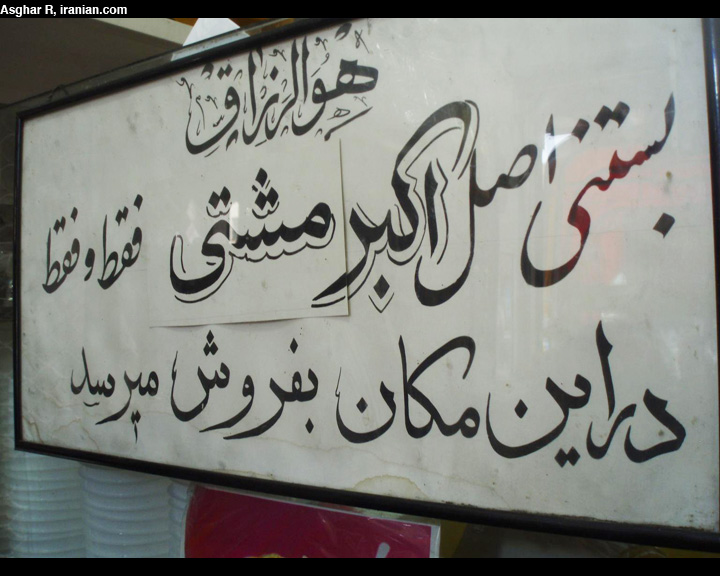 Asghar R, iranian.com
هوالرزاق
بستنی اصل اکبر مشتی فقط و فقط
در این مکان بفروش میرسد